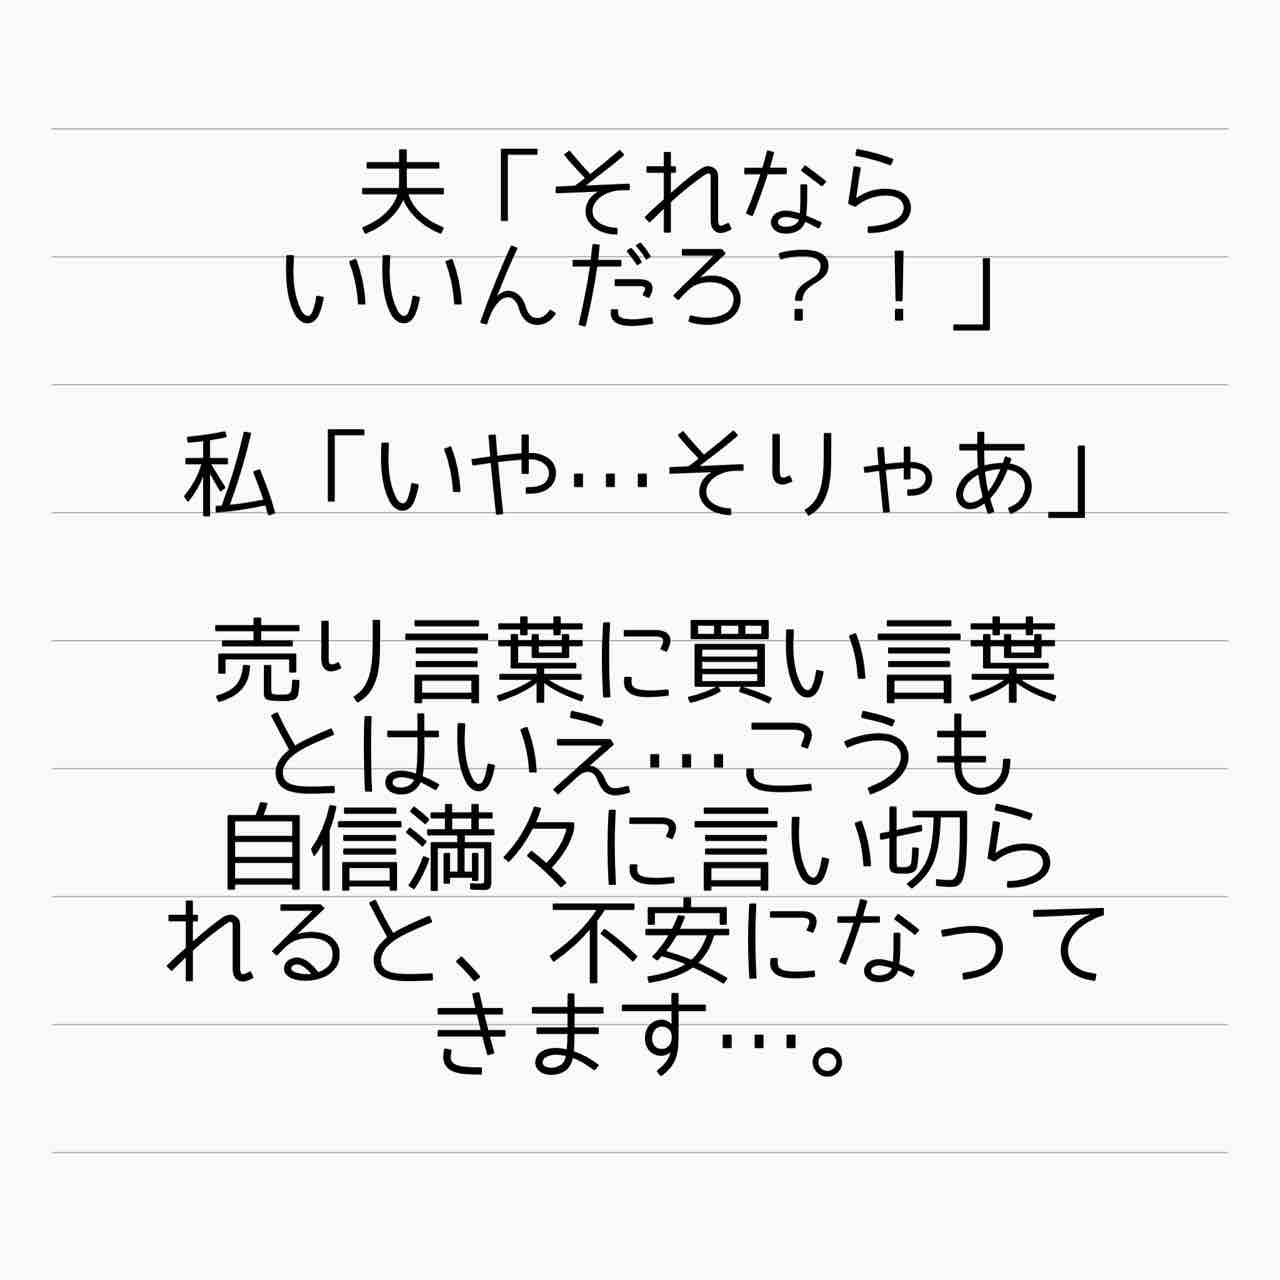 夫「それなら
いいんだろ？！」
私「いや…そりゃあ」
売り言葉に買い言葉
とはいえ…こうも
自信満々に言い切ら
れると、不安になって
きます…。